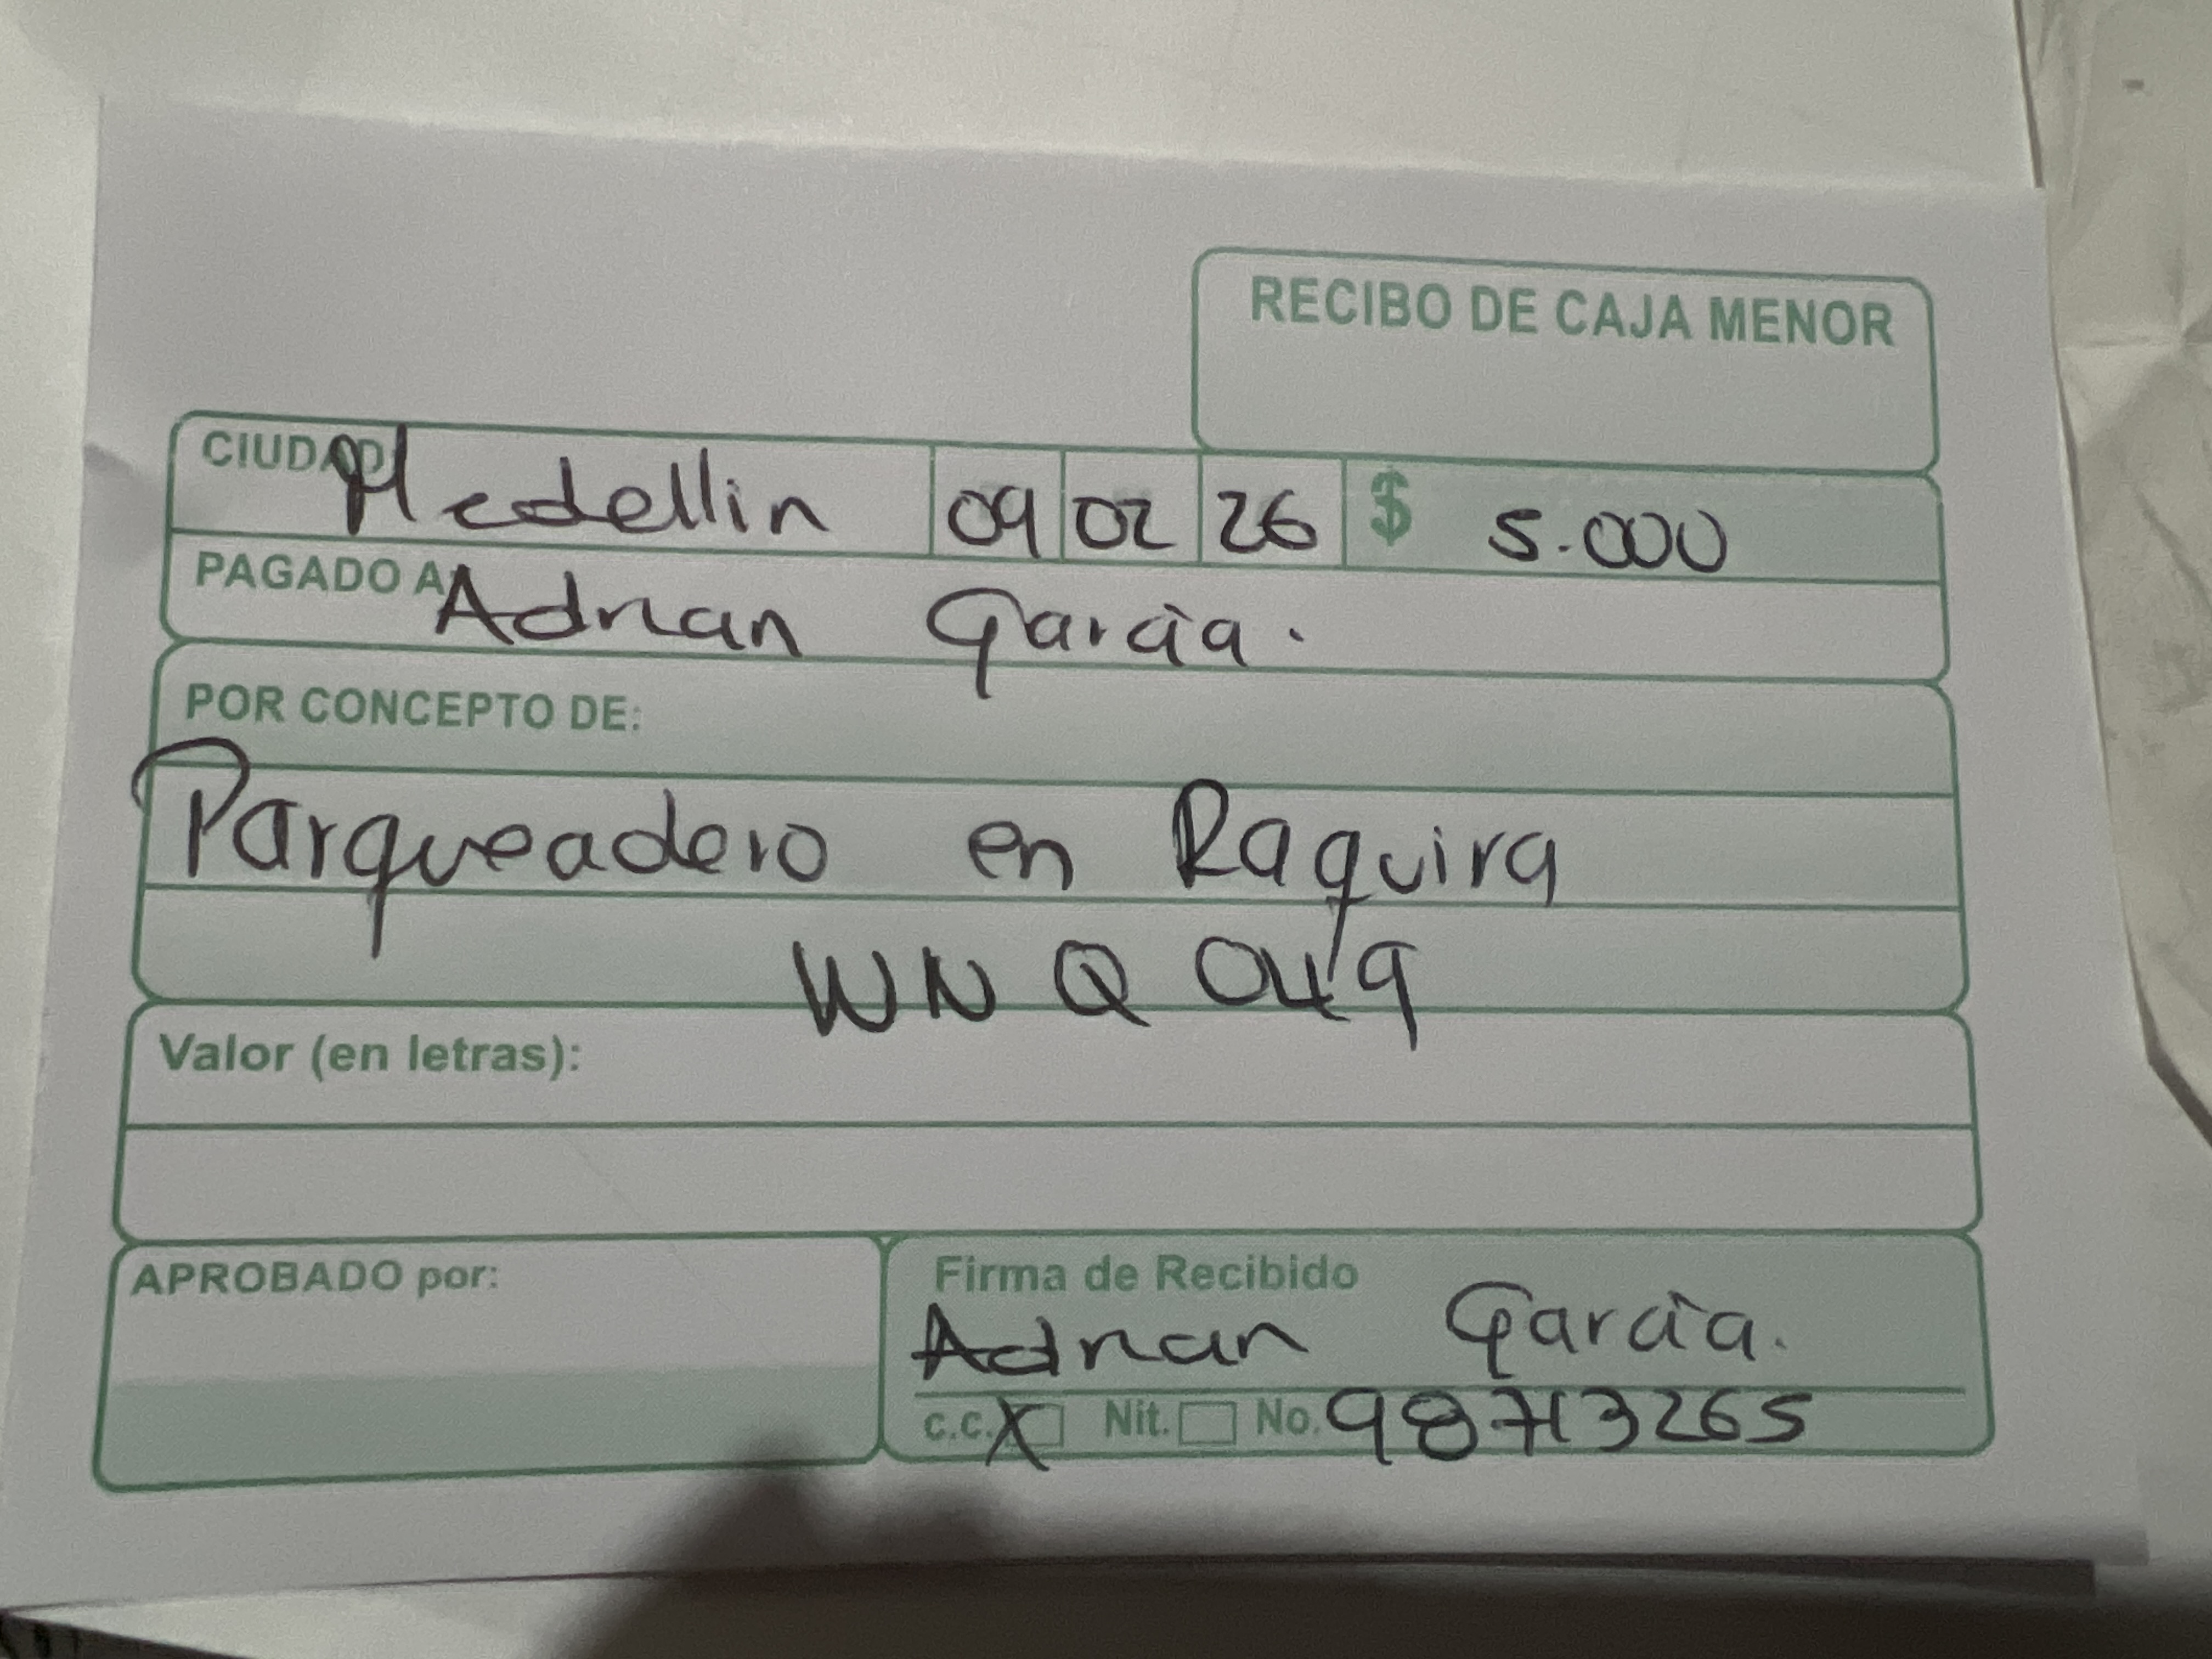 RECIBO DE CAJA MENOR
CIUDAD Medellin 09 02 26 $ 5.000
PAGADO A Adrian Garcia.
POR CONCEPTO DE:
Parqueadero en Raquira
WNQ 049
Valor (en letras):
APROBADO por:
Firma de Recibido
Adrian Garcia.
c.c. X Nit. No. 98713265